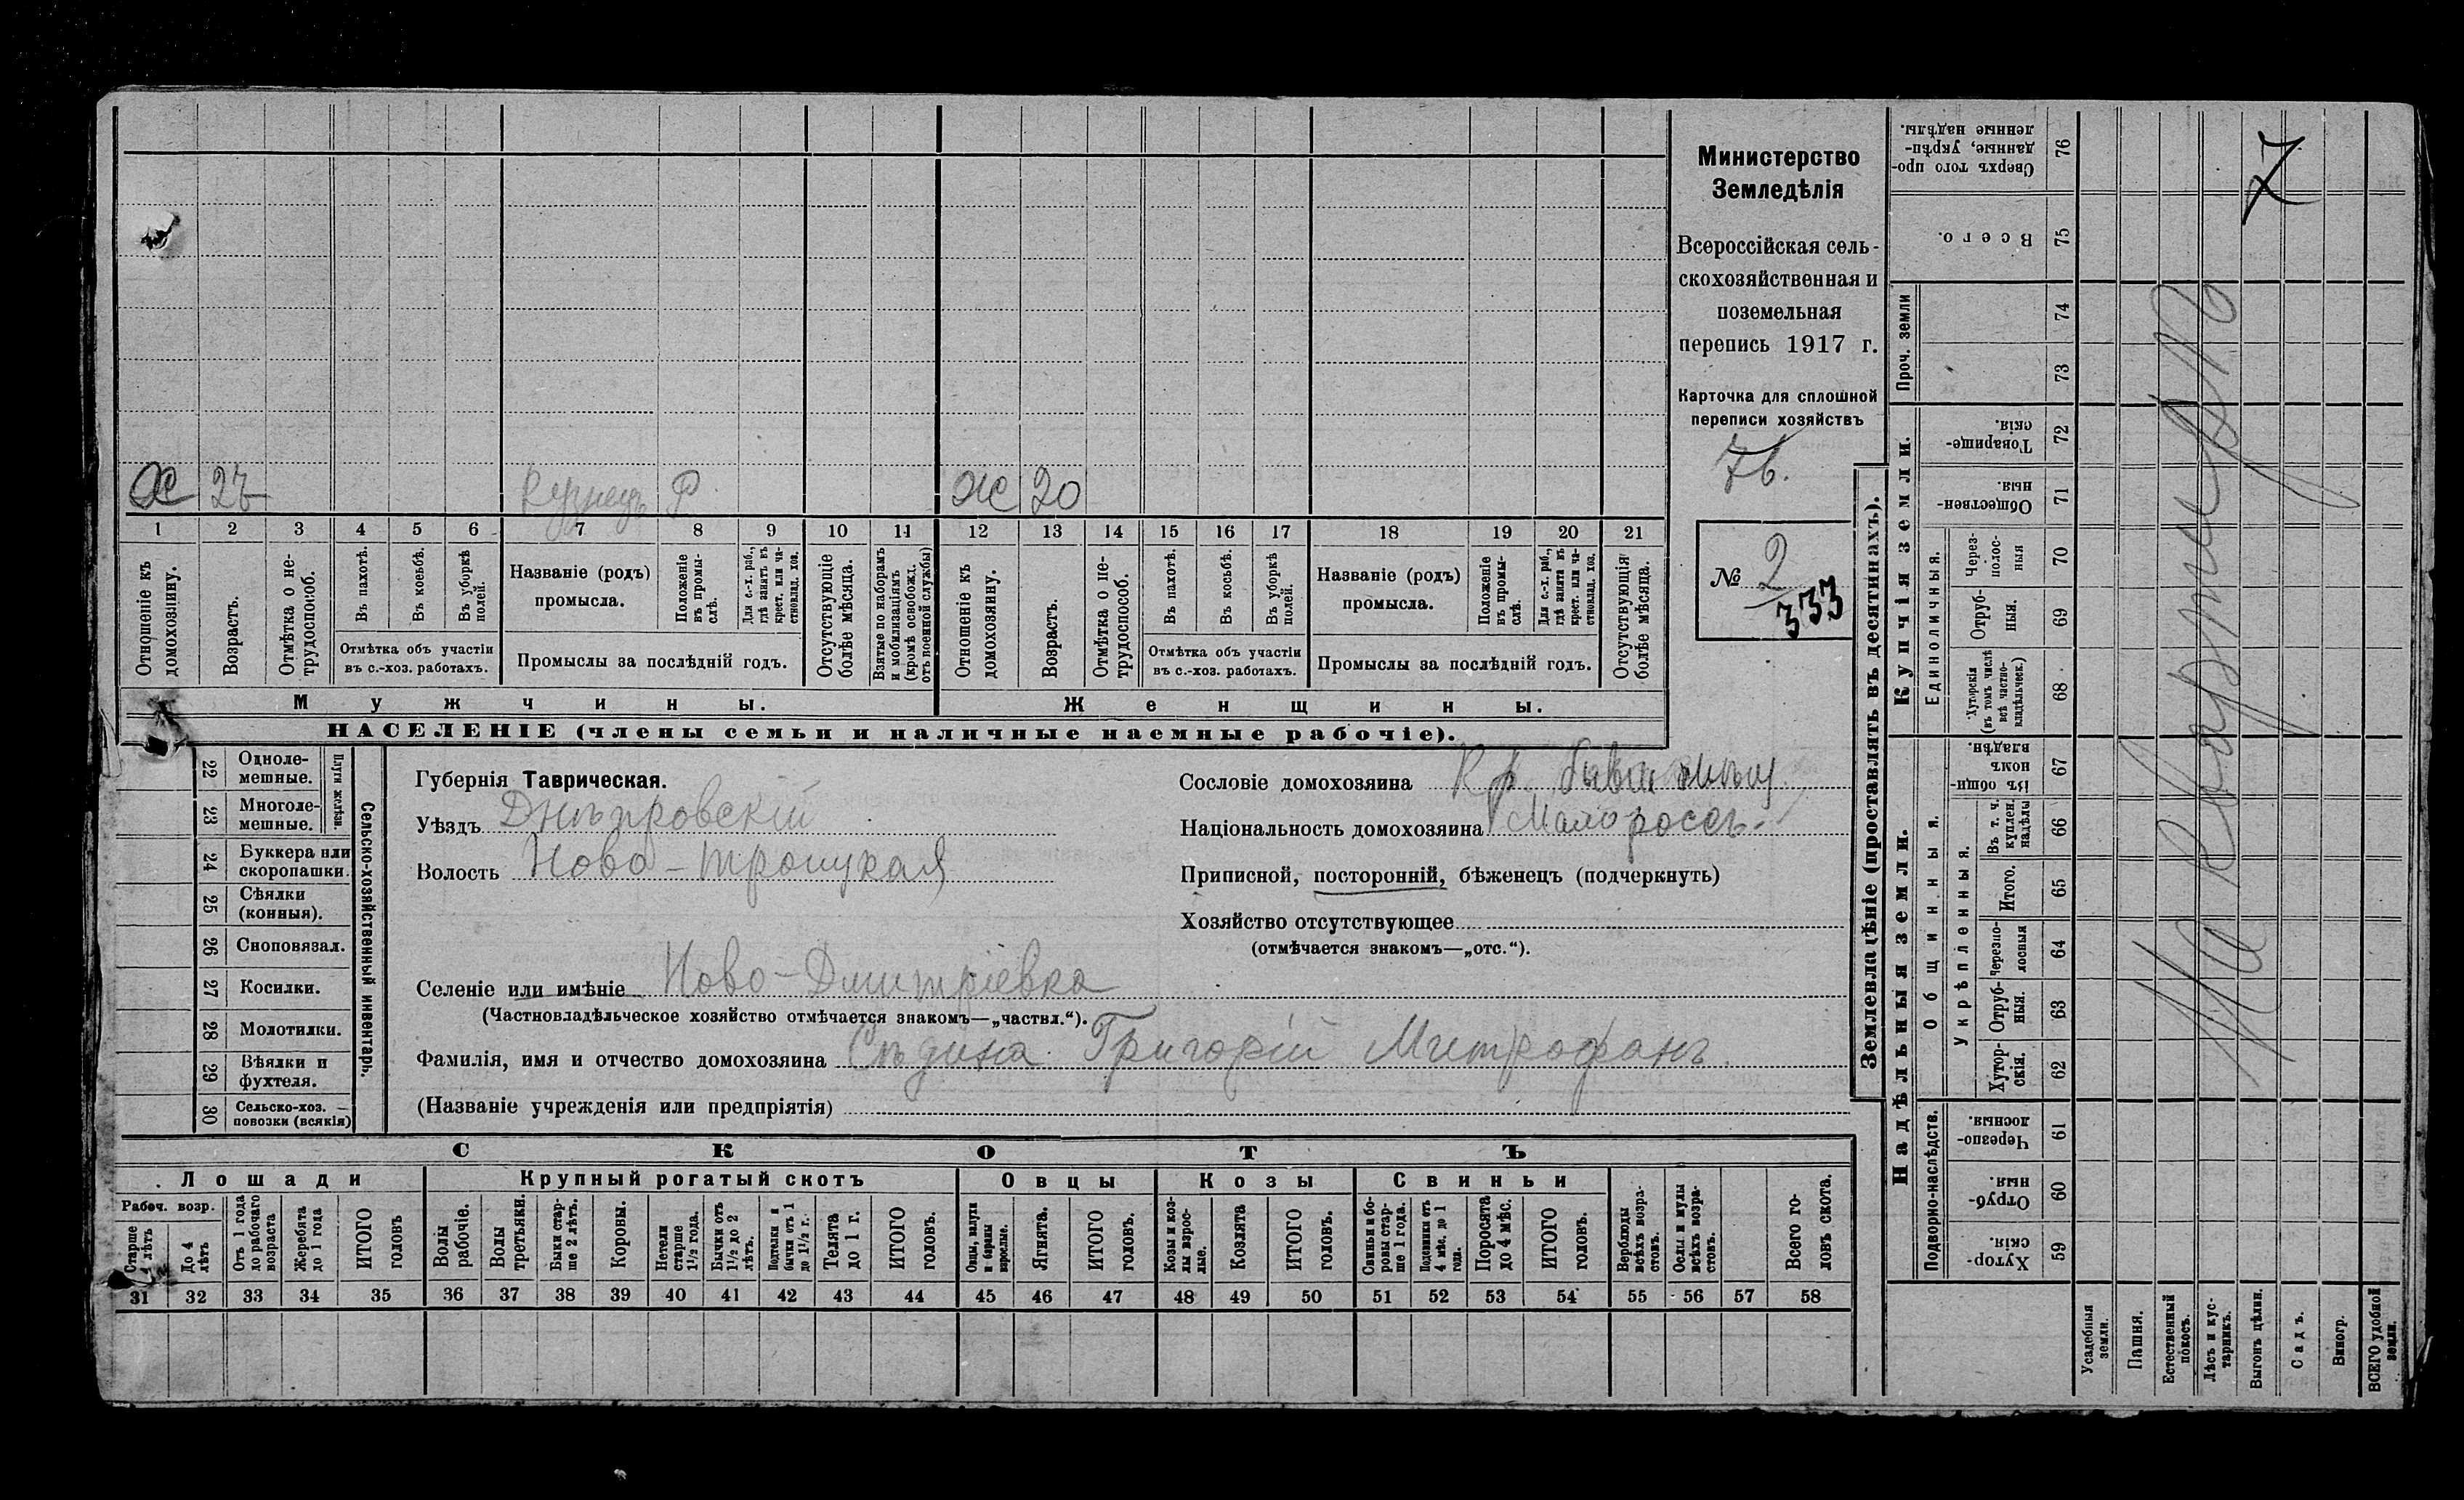 Министерство
Земледѣлія
Всероссійская сель-
скохозяйственная и
поземельная
перепись 1917 г.
Карточка для сплошной
переписи хозяйствъ
7в.
№ 2
333
7
Х 27 Кузнецъ Р Ж 20
1 2 3 4 5 6 7 8 9 10 11 12 13 14 15 16 17 18 19 20 21
Отношеніе къ домохозяину.
Возрастъ.
Отмѣтка о не-трудоспособ.
Въ пахотѣ.
Въ косьбѣ.
Въ уборкѣ полей.
Отмѣтка объ участіи
въ с.-хоз. работахъ.
Названіе (родъ)
промысла.
Положеніе въ промы-слѣ.
Для с.-х. раб., гдѣ занятъ въ крест. или ча-стновлад. хоз.
Промыслы за послѣдній годъ.
Отсутствующіе болѣе мѣсяца.
Взятые по наборамъ и мобилизаціямъ (кромѣ освобожд. отъ военной службы)
Отношеніе къ домохозяину.
Возрастъ.
Отмѣтка о не-трудоспособ.
Въ пахотѣ.
Въ косьбѣ.
Въ уборкѣ полей.
Отмѣтка объ участіи
въ с.-хоз. работахъ.
Названіе (родъ)
промысла.
Положеніе въ промы-слѣ.
Для с.-х. раб., гдѣ занята въ крест. или ча-стновлад. хоз.
Промыслы за послѣдній годъ.
Отсутствующія болѣе мѣсяца.
Мужчины.
Женщины.
НАСЕЛЕНІЕ (члены семьи и наличные наемные рабочіе).
22 Одноле-мешные.
23 Многоле-мешные.
Плуги желѣзн.
24 Буккера или скоропашки.
25 Сѣялки (конныя).
26 Сноповязал.
27 Косилки.
28 Молотилки.
29 Вѣялки и фухтеля.
30 Сельско-хоз. повозки (всякія)
Сельско-хозяйственный инвентарь.
Губернія Таврическая.
Уѣздъ Днѣпровскій
Волость Ново-Троицкая
Селеніе или имѣніе Ново-Дмитріевка
(Частновладѣльческое хозяйство отмѣчается знакомъ—„частвл.“).
Фамилія, имя и отчество домохозяина Сѣдина Григорій Митрофанъ.
(Названіе учрежденія или предпріятія)
Сословіе домохозяина Кр. бывш
Національность домохозяина Малороссъ.
Приписной, посторонній, бѣженецъ (подчеркнуть)
Хозяйство отсутствующее
(отмѣчается знакомъ—„отс.“).
СКОТЪ
Лошади
Крупный рогатый скотъ
Овцы
Козы
Свиньи
Рабоч. возр.
Старше 4 лѣтъ
До 4 лѣтъ
Отъ 1 года до рабочаго возраста
Жеребята до 1 года
ИТОГО головъ
Волы рабочіе.
Волы третьяки.
Быки стар-ше 2 лѣтъ.
Коровы.
Нетели старше 1½ года.
Бычки отъ 1½ до 2 лѣтъ.
Подтелки и бычки отъ 1 до 1½ г.
Телята до 1 г.
ИТОГО головъ.
Овцы, валухи и бараны взрослые.
Ягнята.
ИТОГО головъ.
Козы и коз-лы взрос-лые.
Козлята
ИТОГО головъ.
Свиньи и бо-ровы стар-ше 1 года.
Подсвинки отъ 4 мѣс. до 1 года.
Поросята до 4 мѣс.
ИТОГО головъ.
Верблюды всѣхъ возра-стовъ.
Ослы и мулы всѣхъ возра-стовъ.
Всего го-ловъ скота.
31 32 33 34 35 36 37 38 39 40 41 42 43 44 45 46 47 48 49 50 51 52 53 54 55 56 57 58
Землевладѣніе (проставлять въ десятинахъ).
Надѣльныя земли.
Купчія земли.
Проч. земли
Подворно-наслѣдств.
Общинныя.
Укрѣпленныя.
Единоличныя.
Хутор-скія. 59
Отруб-ныя. 60
Черезпо-лосныя. 61
Хутор-скія. 62
Отруб-ныя. 63
Черезпо-лосныя 64
Итого. 65
Въ т. ч. куплен. надѣлы 66
Въ общин-номъ владѣн. 67
Хуторскія (въ томъ числѣ всѣ частно-владѣльческ.) 68
Отруб-ныя. 69
Через-полос-ныя 70
Обществен-ныя. 71
Товарище-скія. 72
73
74
Всего. 75
Сверхъ того про-данные, укрѣп-ленные надѣлы. 76
Усадебныя земли.
Пашня.
Естественный покосъ.
Лѣсъ и кус-тарникъ.
Выгонъ цѣлин.
Садъ.
Виногр.
ВСЕГО удобной земли.
На квартирѣ